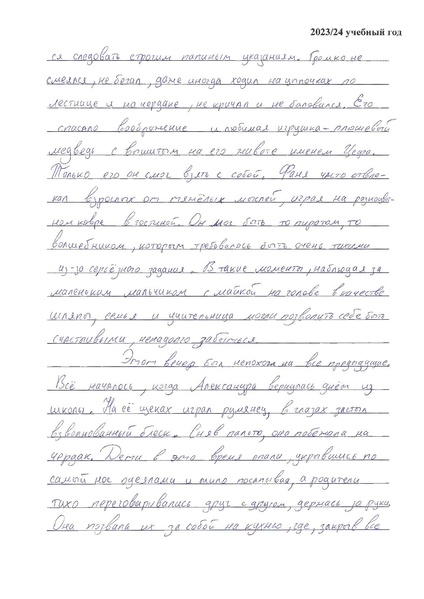 2023/24 учебный год
ся следовать строгим папиным указаниям. Громко не
смеялся, не бегал, даже иногда ходил на цыпочках по
лестнице и на чердаке, не кричал и не баловался. Его
спасало воображение и любимая игрушка – плюшевый
медведь с вышитым на его животе именем
Только его он смог взять с собой. Фаня часто отвле-
кал взрослых от тяжёлых мыслей, играя на разноцвет-
ном ковре в гостиной. Он мог быть то пиратом, то
волшебником, которым требовалось быть очень тихими
из-за серьёзного задания. В такие моменты, наблюдая за
маленьким мальчиком с майкой на голове в качестве
шляпы, семья и учительница могли позволить себе быть
счастливыми, ненадолго забыться.
Этот вечер был непохож на все предыдущие.
Всё началось, когда Александра вернулась днём из
школы. На её щеках играл румянец, в глазах застыл
взволнованный блеск. Сняв пальто, она побежала на
чердак. Дети в это время спали, укрывшись по
самый нос одеялами и мило посапывая, а родители
тихо переговаривались друг с другом, держась за руки.
Она позвала их за собой на кухню, где, закрыв все